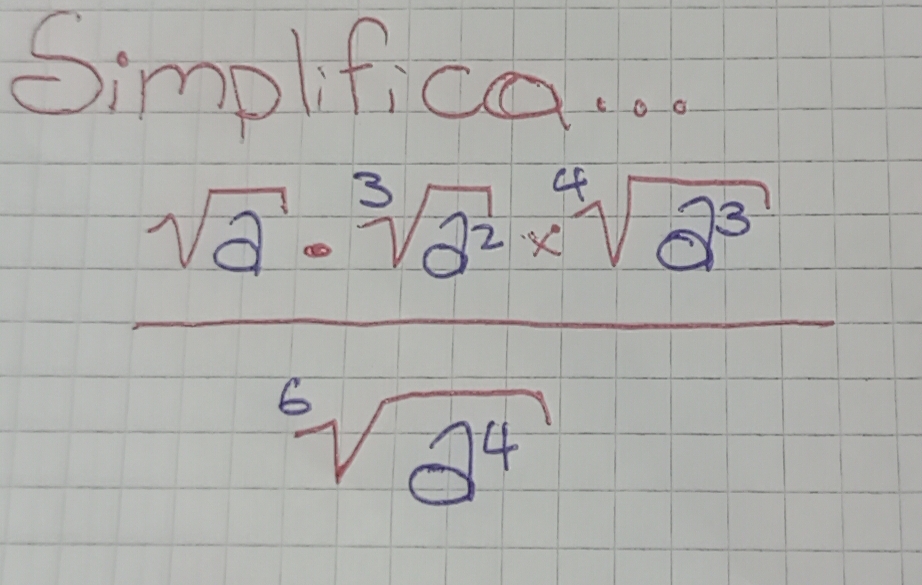 Simplifica...
√2 • ³√2² × ⁴√2³
⁶√2⁴